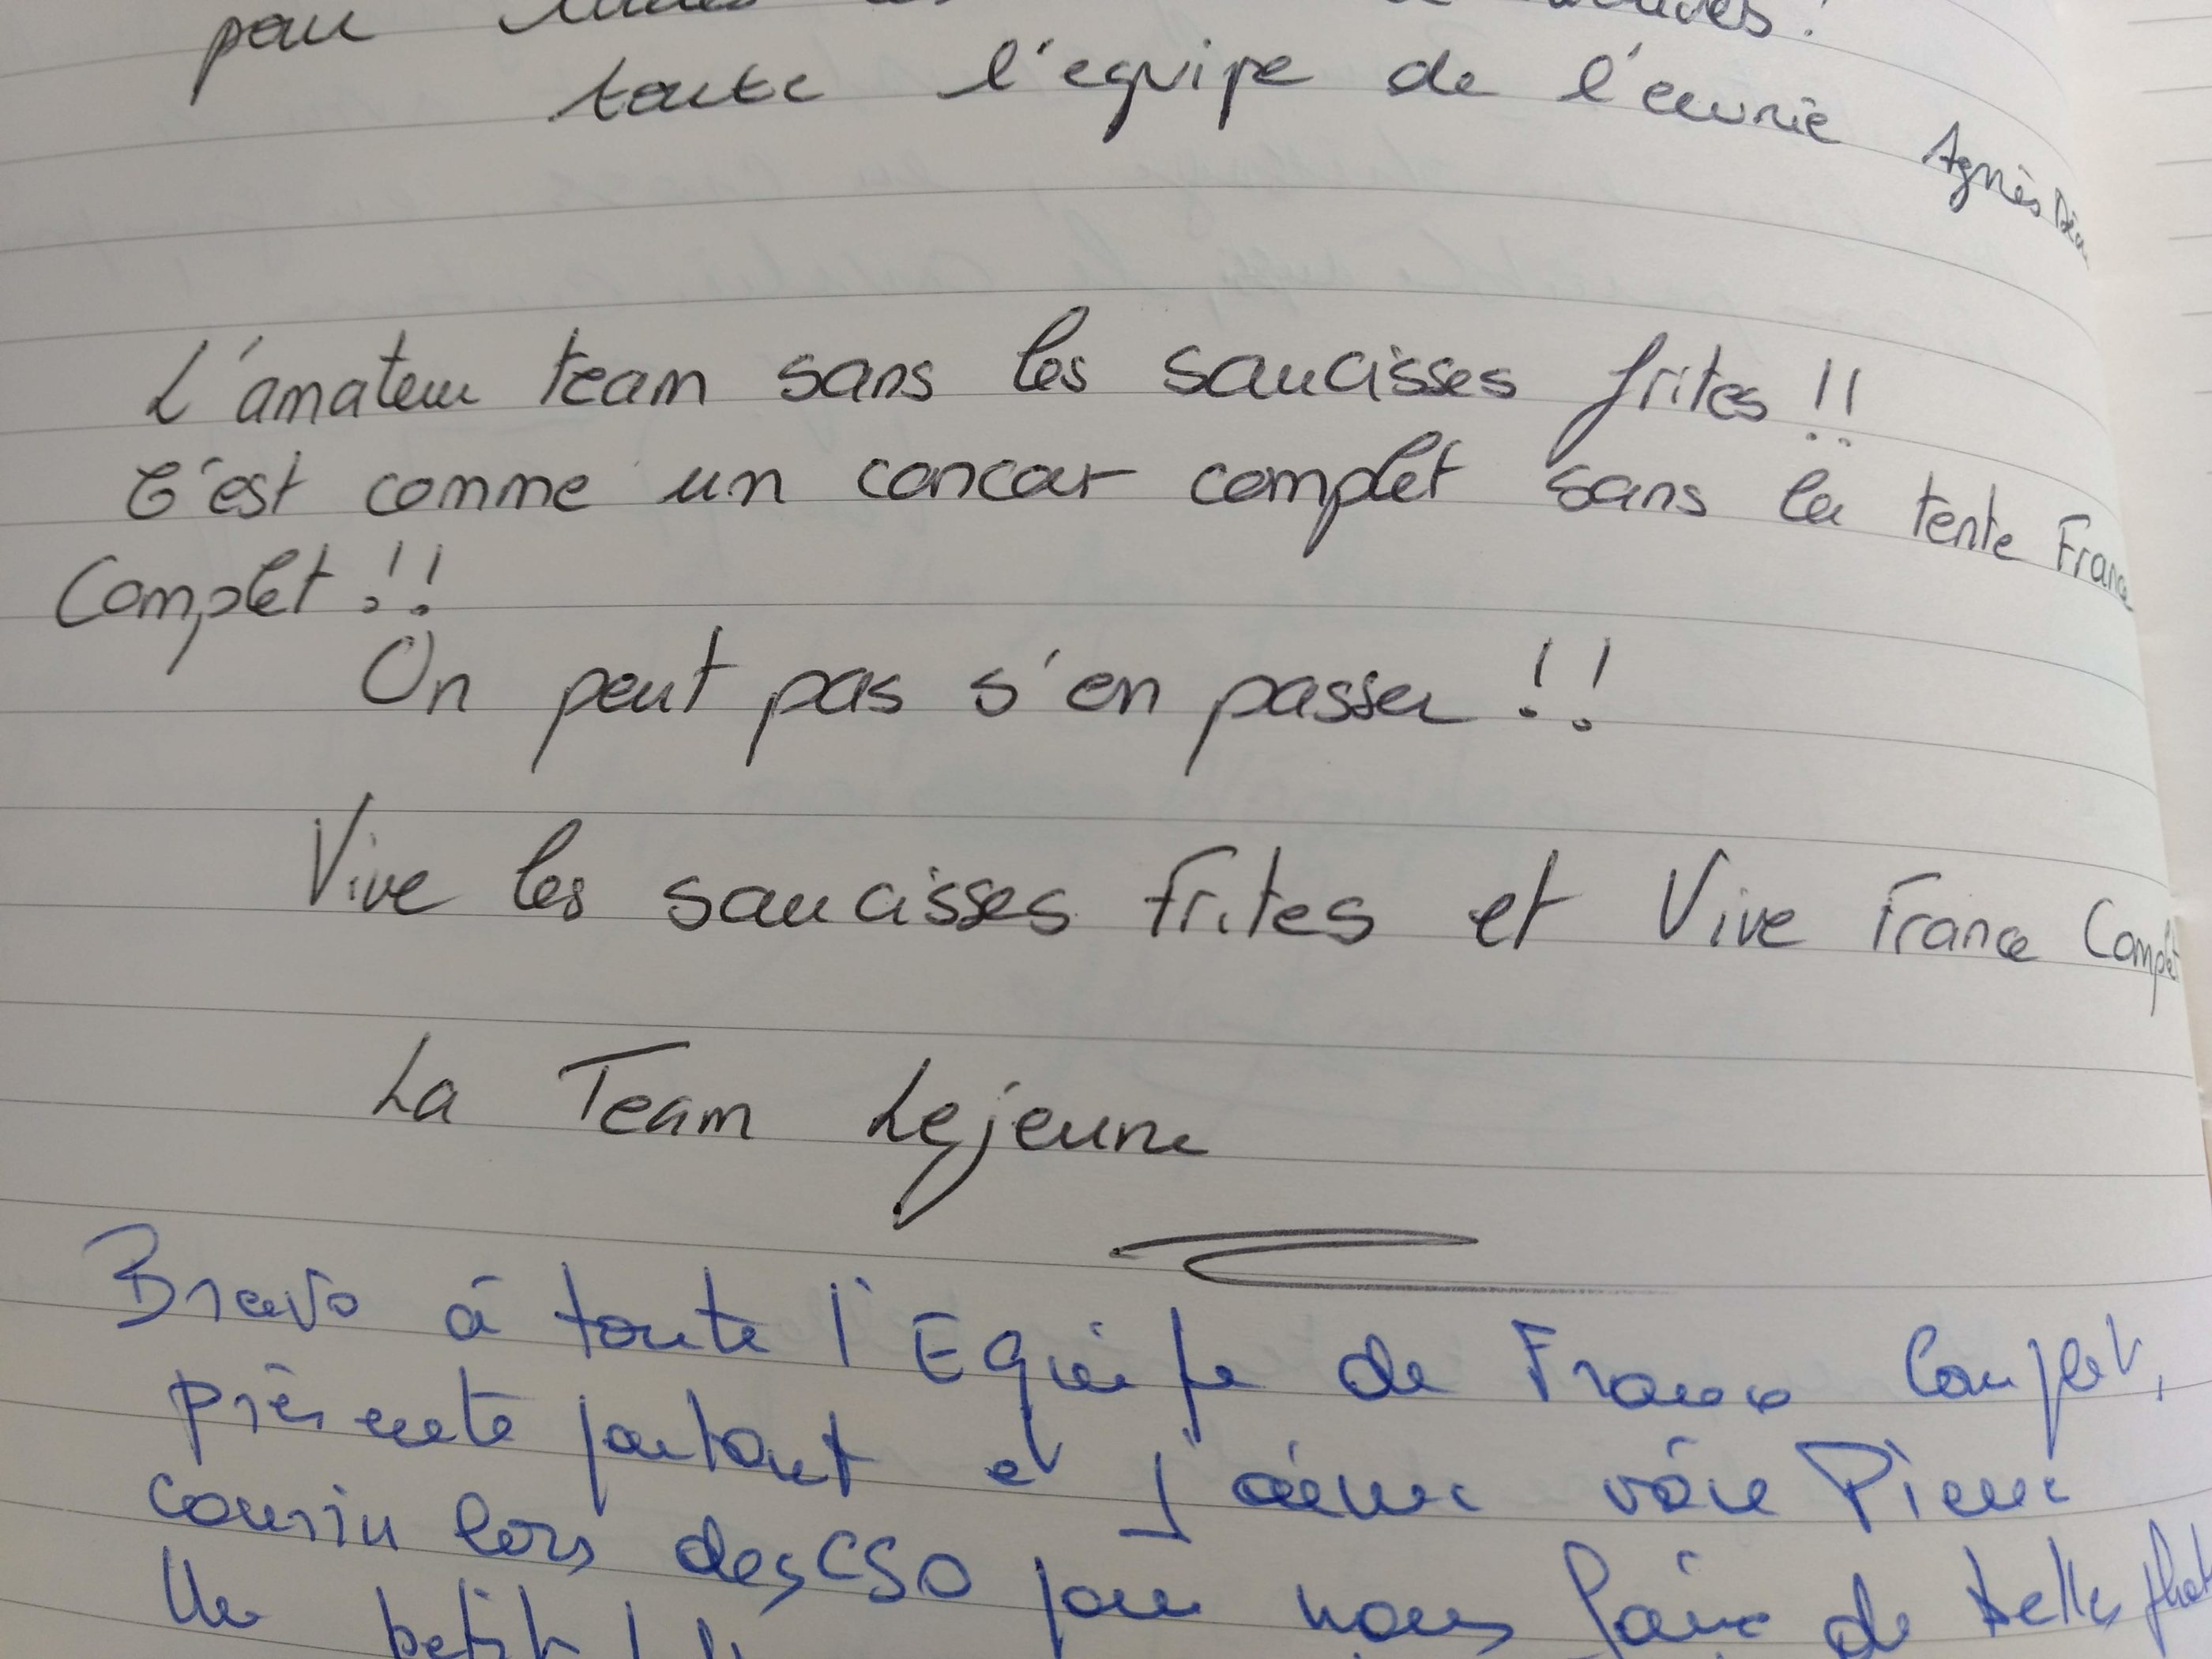 pour
toute l'equipe de l'ecurie Agnès
L'amateur team sans les saucisses frites !!
C'est comme un concour complet sans la tente France
Complet !!
On peut pas s'en passer !!
Vive les saucisses frites et Vive France Complet
La Team Lejeune
Bravo à toute l'Equipe de France Complet,
présente partout et j'aime voir Pierre
courir lors des CSO pour nous faire de belles phot
Un petit